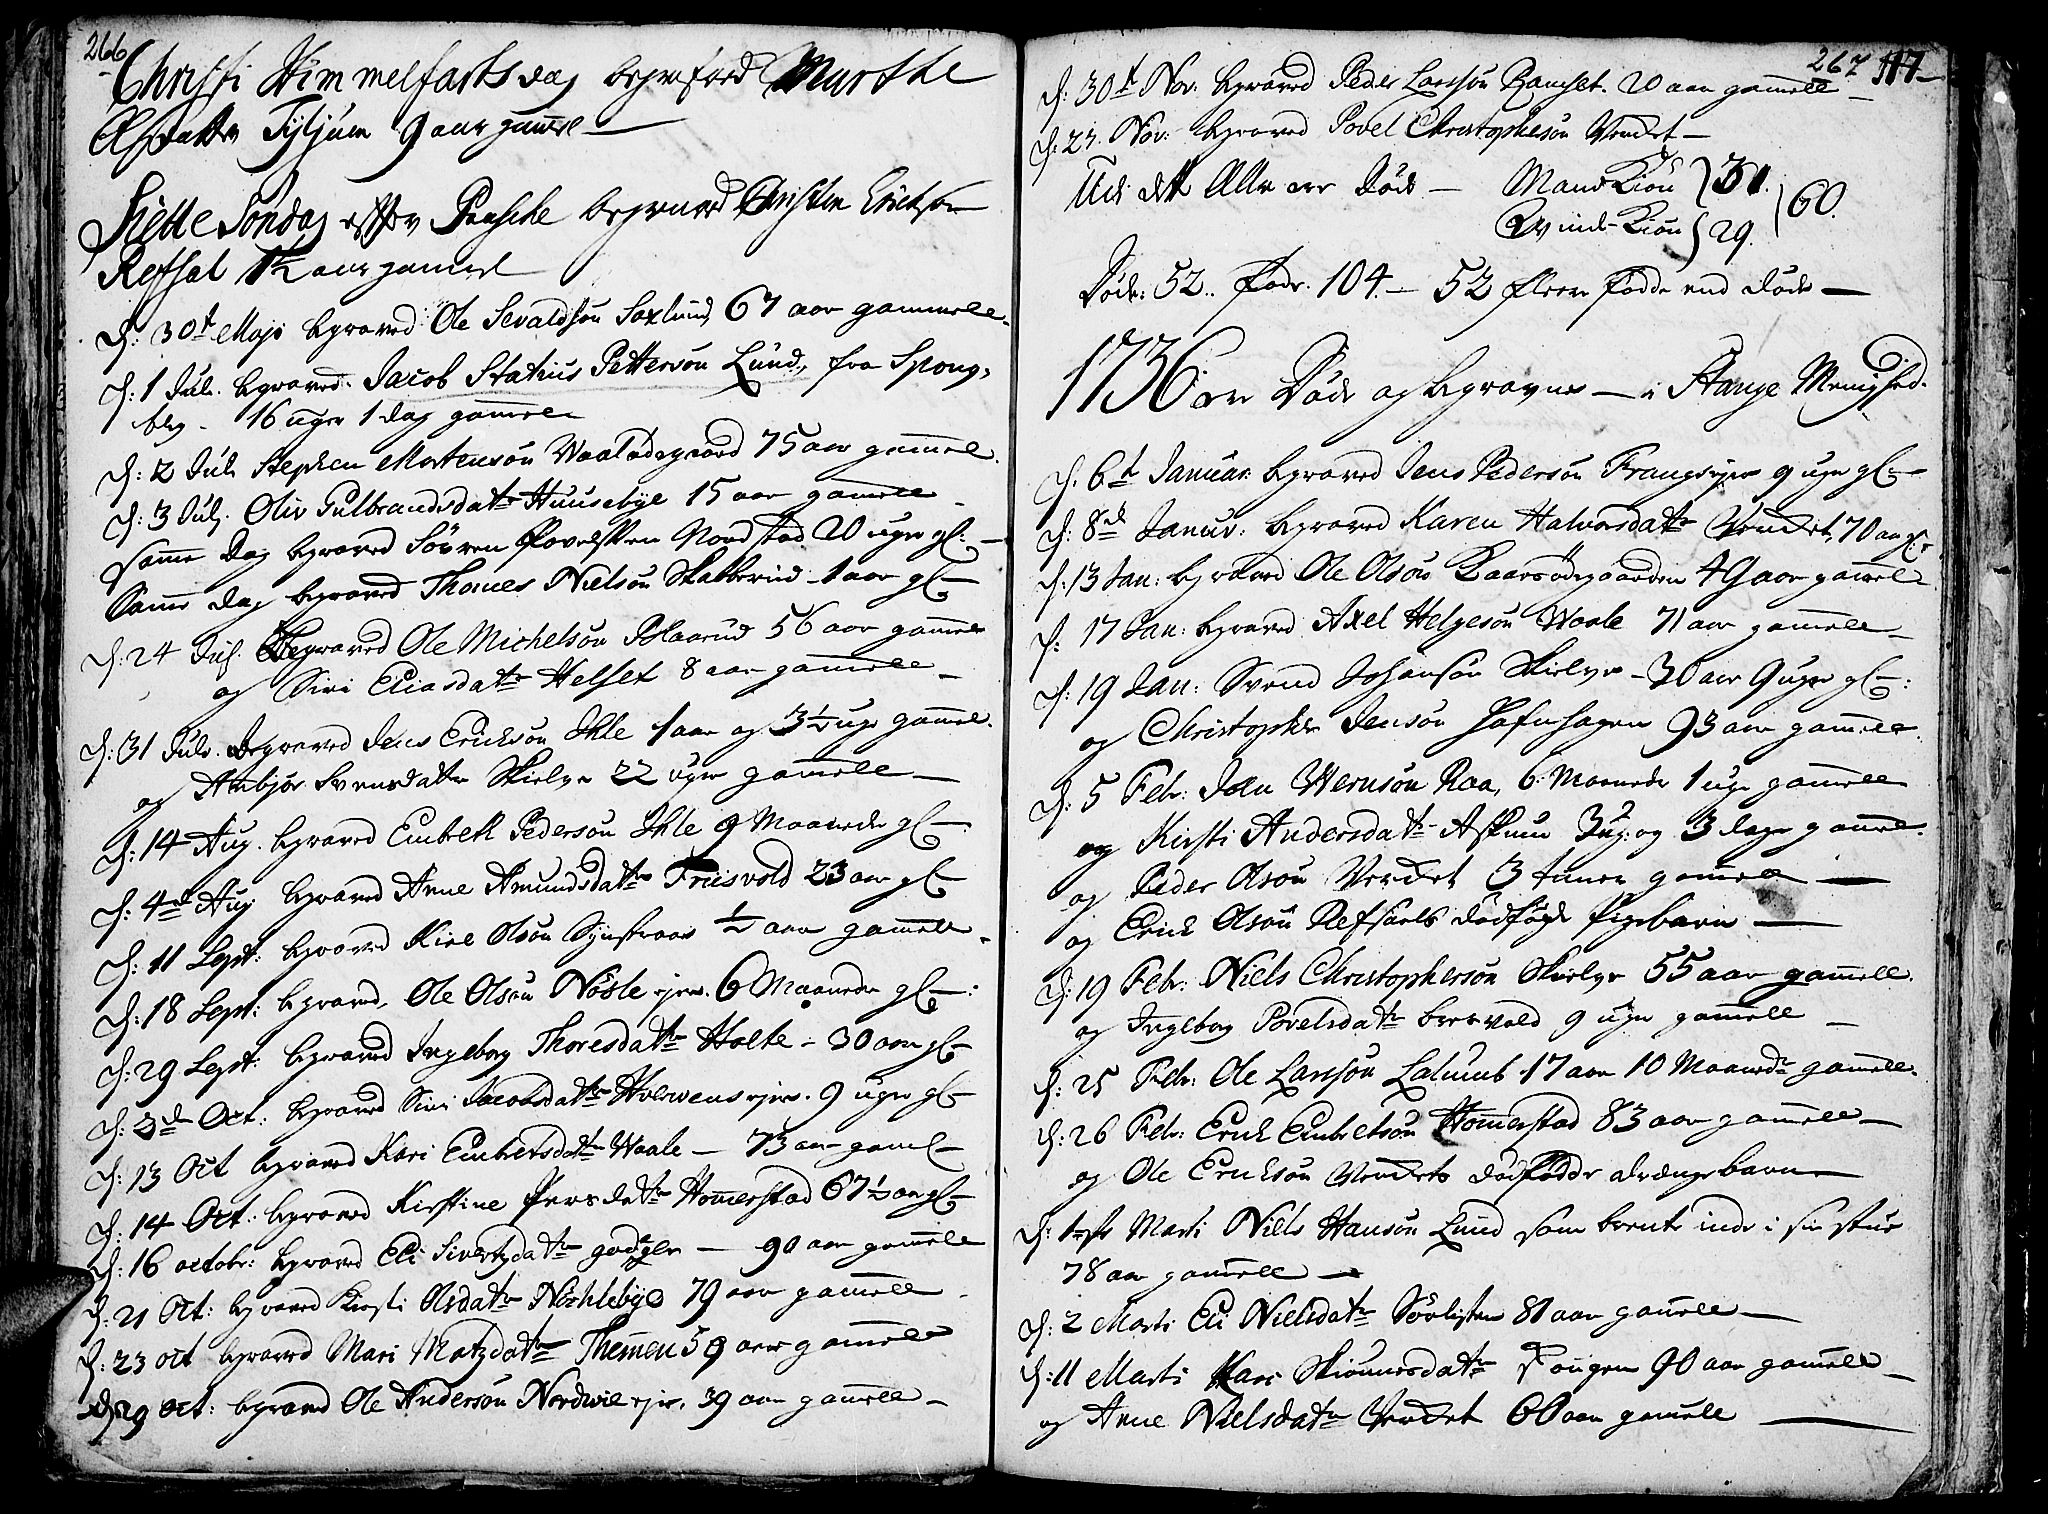 266
Christi Himmelfarts dag begrafved Marthe
Olsdatter 9 aar gamel
Siette Søndag efter Paasche begraved Christen Erichsøn
Refsal 1½ aar gamel
d: 30t Maji begraved Ole Sevaldsøn Saxlund, 67 aar gammell
d: 1 Jul. begraved Jacob Statius Pettersøn Lund, fra Spong-
berg 16 uger 1 dag gamel
d: 2 Jul. Stephen Mortensøn 75 aar gamel
d: 3 Jul. Oliv Gulbrandsdatr Huusebye 15 aar gamell
samme Dag begraved Søvren Povelsen Nordstad 20 uger gl:
Samme dag begraved Thomes Nielsøn Skatterud 1 aar gl
d: 24 Jul. Begraved Ole Michelsøn 56 aar gamell
og Siri Eliasdatr Helset 8 aar gamell
d: 31 Jul. Begraved Jens Erichsøn Ihle 1 aar og 3½ uge gamel
og Anbjør Svensdatr Skielve 22 uger gamell
d: 14 Aug. begraved Embrett Pedersøn Ihle 9 Maaneder gl
d: 4de Aug begraved Anne Amundsdatr Friisvold 23 aar gl
d: 11 Sept: begraved Kiel Olsøn ½ aar gamell
d: 18 Sept: begraved, Ole Olsøn Nøsle ejer. 6 Maaneder gl:
d: 29 Sept: begraved Ingeborg Thoresdatr Holte - 30 aar gl
d: 3de Oct: begraved Siri Jacobsdatr ejer. 9 uger gl
d: 13 Oct begraved Kari Embretsdatr Waale - 73 aar gaml
d: 14 Oct: begraved Kirstine Persdatr Homerstad 67½ aar gl
d: 16 octobr: begraved Eli Sivertzdatr - 90 aar gamell
d: 21 Oct: begraved Kirsti Olsdatr Nøchlebye 79 aar gamell
d: 23 oct begraved Mari Matzdatr Themen 59 aar gamell
d: 29 oct: begraved Ole Andersøn Nordwie ejer. 39 aar gamell
267 117
d: 30t Nov. begraved Peder Larssøn Ramset. 20 aar gamell
d: 23. Nov: begraved Povel Christophersøn Verdet
Ud dett Aar ere døde - Mand Kiøn 31.
Qvinde-Kiøn 29. 60.
Døde: 52. Fødr. 104. - 52 fleere fødde end døde
1736 ere Døde og begravne - i Stange Menighed.
d. 6t Januar. begraved Jens Pedersøn 9 uger gl
d: 8de Januar: begraved Karen Halvorsdatr Verdet, 70 aar gl.
d: 13 Jan: begraved Ole Olsøn Baarsødegaarden 49 aar gamel
d: 17 Jan: begraved Axel Helgesøn Waale 71 aar gamell
d: 19 Jan: Svend Johansøn Skielve - 30 aar 9 uger gl:
og Christopher Jensøn Hafnhagen 93 aar gamell
d: 5 Febr: Joen Wernsøn Raa, 6. Maaneder 1 uge gamell
og Kirsti Andersdatr Askum 3 ug: og 3 dage gamel
og Peder Olsøn Verdet 3 timer gamell
og Erich Olsøn Refsaels dødfødde Pigebarn
d: 19 Febr: Niels Christophersøn Skielve 55 aar gamell
og Ingeborg Povelsdatr 9 uger gamell
d: 25 Febr: Ole Larssøn Lalumb 17 aar 10 Maaneder gamell
d: 26 Febr: Erich Embretsøn Homerstad 83 aar gamell
og Ole Erichsøn Verdets dødfødde drængebarn
d: 1ste Marti Niels Hansøn Lund som brente inde i sin stue
78 aar gamell
d: 2 Marti Eli Nielsdatr Sørlisten 81 aar gamell
d: 11 Marti Kari 90 aar gamell
og Anne Nielsdatr Verdet 60 aar gamell